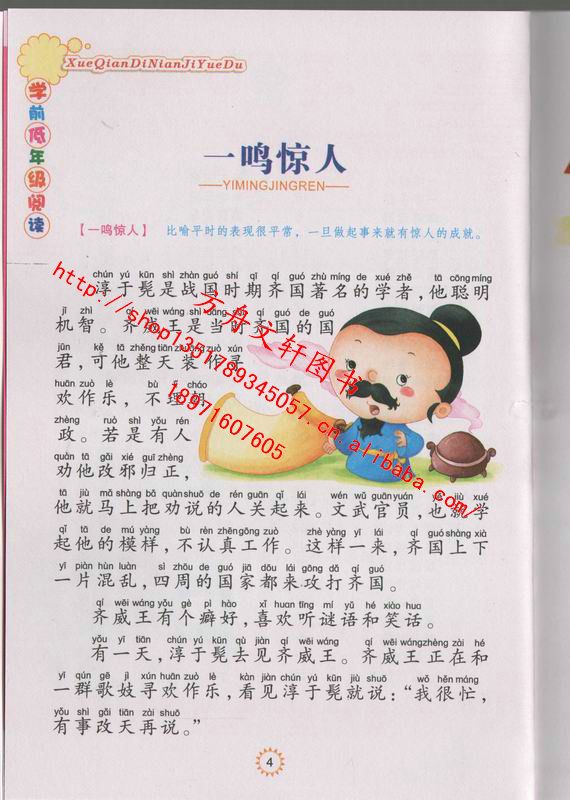 XueQianDiNianJiYueDu
学前低年级阅读
一鸣惊人
YIMINGJINGREN
【一鸣惊人】 比喻平时的表现很平常，一旦做起事来就有惊人的成就。
chún yú kūn shì zhàn guó shí qī qí guó zhù míng de xué zhě tā cōng míng
淳于髡是战国时期齐国著名的学者，他聪明
jī zhì qí wēi wáng shì dāng shí qí guó de guó
机智。齐威王是当时齐国的国
jūn kě tā zhěng tiān zhuāng zuò xún
君，可他整天装作寻
huān zuò lè bù lǐ cháo
欢作乐，不理朝
zhèng ruò shì yǒu rén
政。若是有人
quàn tā gǎi xié guī zhèng
劝他改邪归正，
tā jiù mǎ shàng bǎ quàn shuō de rén guān qǐ lái wén wǔ guān yuán yě jiù xué
他就马上把劝说的人关起来。文武官员，也就学
qǐ tā de mú yàng bù rèn zhēn gōng zuò zhè yàng yī lái qí guó shàng xià
起他的模样，不认真工作。这样一来，齐国上下
yī piàn hùn luàn sì zhōu de guó jiā dōu lái gōng dǎ qí guó
一片混乱，四周的国家都来攻打齐国。
qí wēi wáng yǒu gè pǐ hào xǐ huan tīng mí yǔ hé xiào hua
齐威王有个癖好，喜欢听谜语和笑话。
yǒu yī tiān chún yú kūn qù jiàn qí wēi wáng qí wēi wáng zhèng zài hé
有一天，淳于髡去见齐威王。齐威王正在和
yī qún gē jì xún huān zuò lè kàn jiàn chún yú kūn jiù shuō wǒ hěn máng
一群歌妓寻欢作乐，看见淳于髡就说：“我很忙，
yǒu shì gǎi tiān zài shuō
有事改天再说。”
4
方舟文轩图书
http://shop1351789345057.cn.alibaba.com/
18971607605